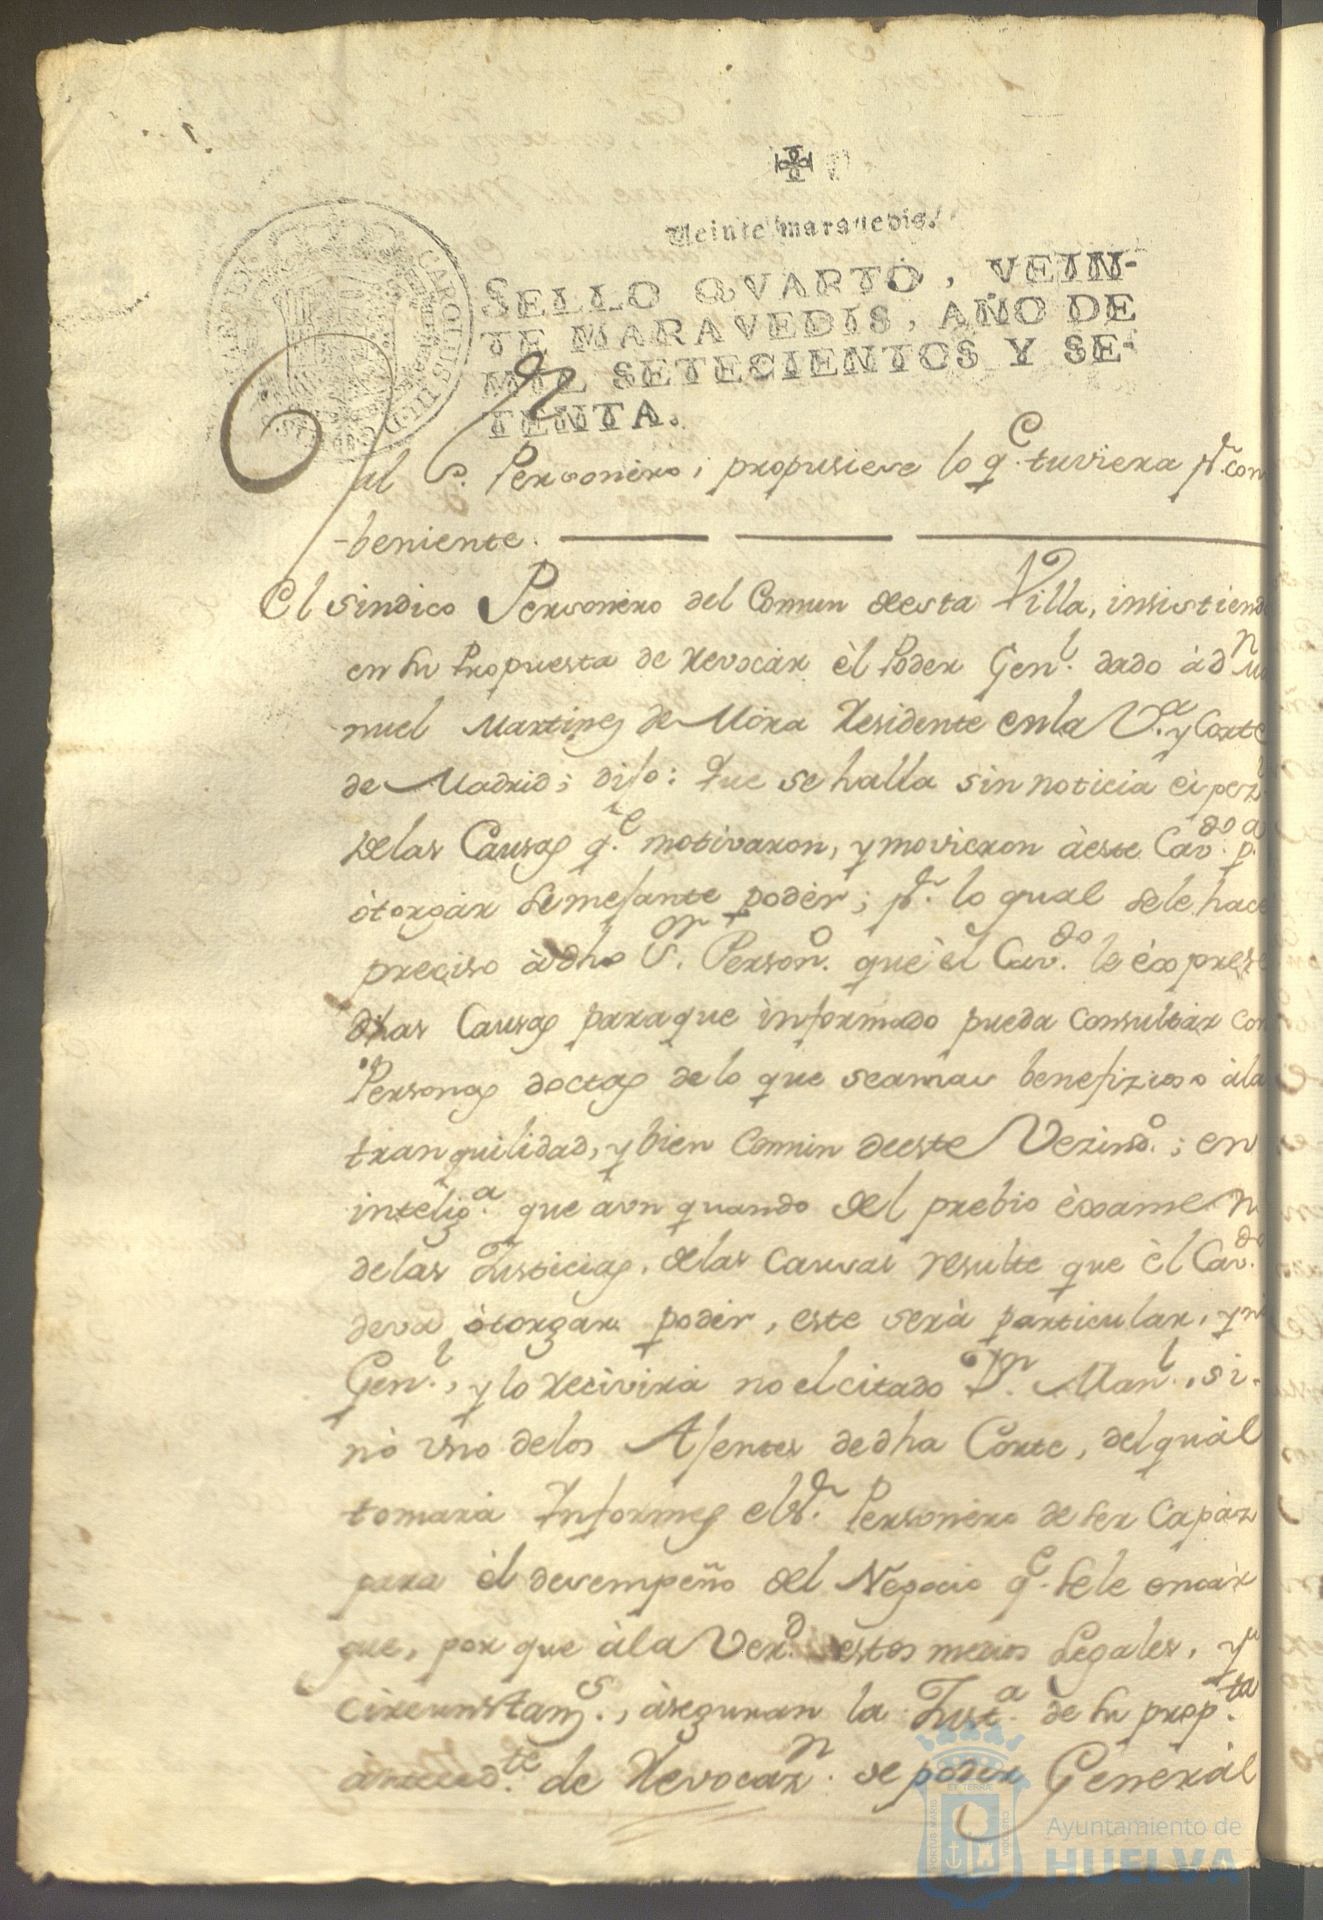 Veinte maravedis.
SELLO QVARTO, VEIN-
TE MARAVEDIS, AÑO DE
MIL SETECIENTOS Y SE-
TENTA.
CAROLUS III D G
al Sr. Personèro; propusiese lo qe. tuviera pr. con
-beniente.
El sindico Personèro del Comun deesta Villa, insistiend
en su Propuesta de Revocar èl Poder Genl. dado à dn Ma
nuel Martines de Mòra Residente en la Va. y Corte
de Madrid; dijo: Que se halla sin noticia
delas Causas qe. motivaron, y movieron àeste Cavdo. pa.
òtorgàr semejante podèr; pr. lo qual sele hace
preciso àdho Sr. Persono. què èl Cavdo. le èxprese
dhas Causas paraque ìnformado pueda consultàr con
Personas doctas de lo que seamas benefizioso àla
tranquilidad, y bien Comun deeste Vezindo.; en
inteliga. que aun quando del prebio èxamen
delas Justicias, delas causas resulte que èl Cavdo.
deva òtorgar podèr, este serà particular, y no
Genl., y lo Recivirà no el citado Dn. Manl., si-
nò uno delos Ajentes dedha Corte, del quàl
tomarà Informes el Sr. Personèro de ser Capàz
para èl desempeño del Negocio qe. sele encàr
gue, por que àla Verd. estos medios Legales, y
circunstans., àseguran la Justa. de su propta.
àntecedte. de Revocarn. se podèr Generàl
Ayuntamiento de
HUELVA